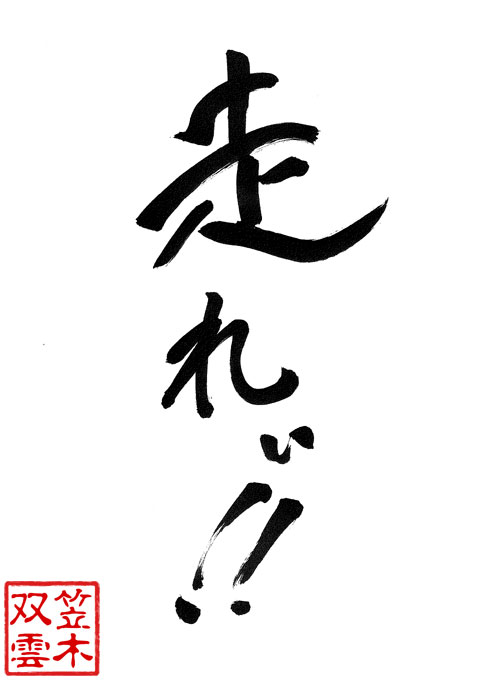 走れぃ!!
笠木
双雲